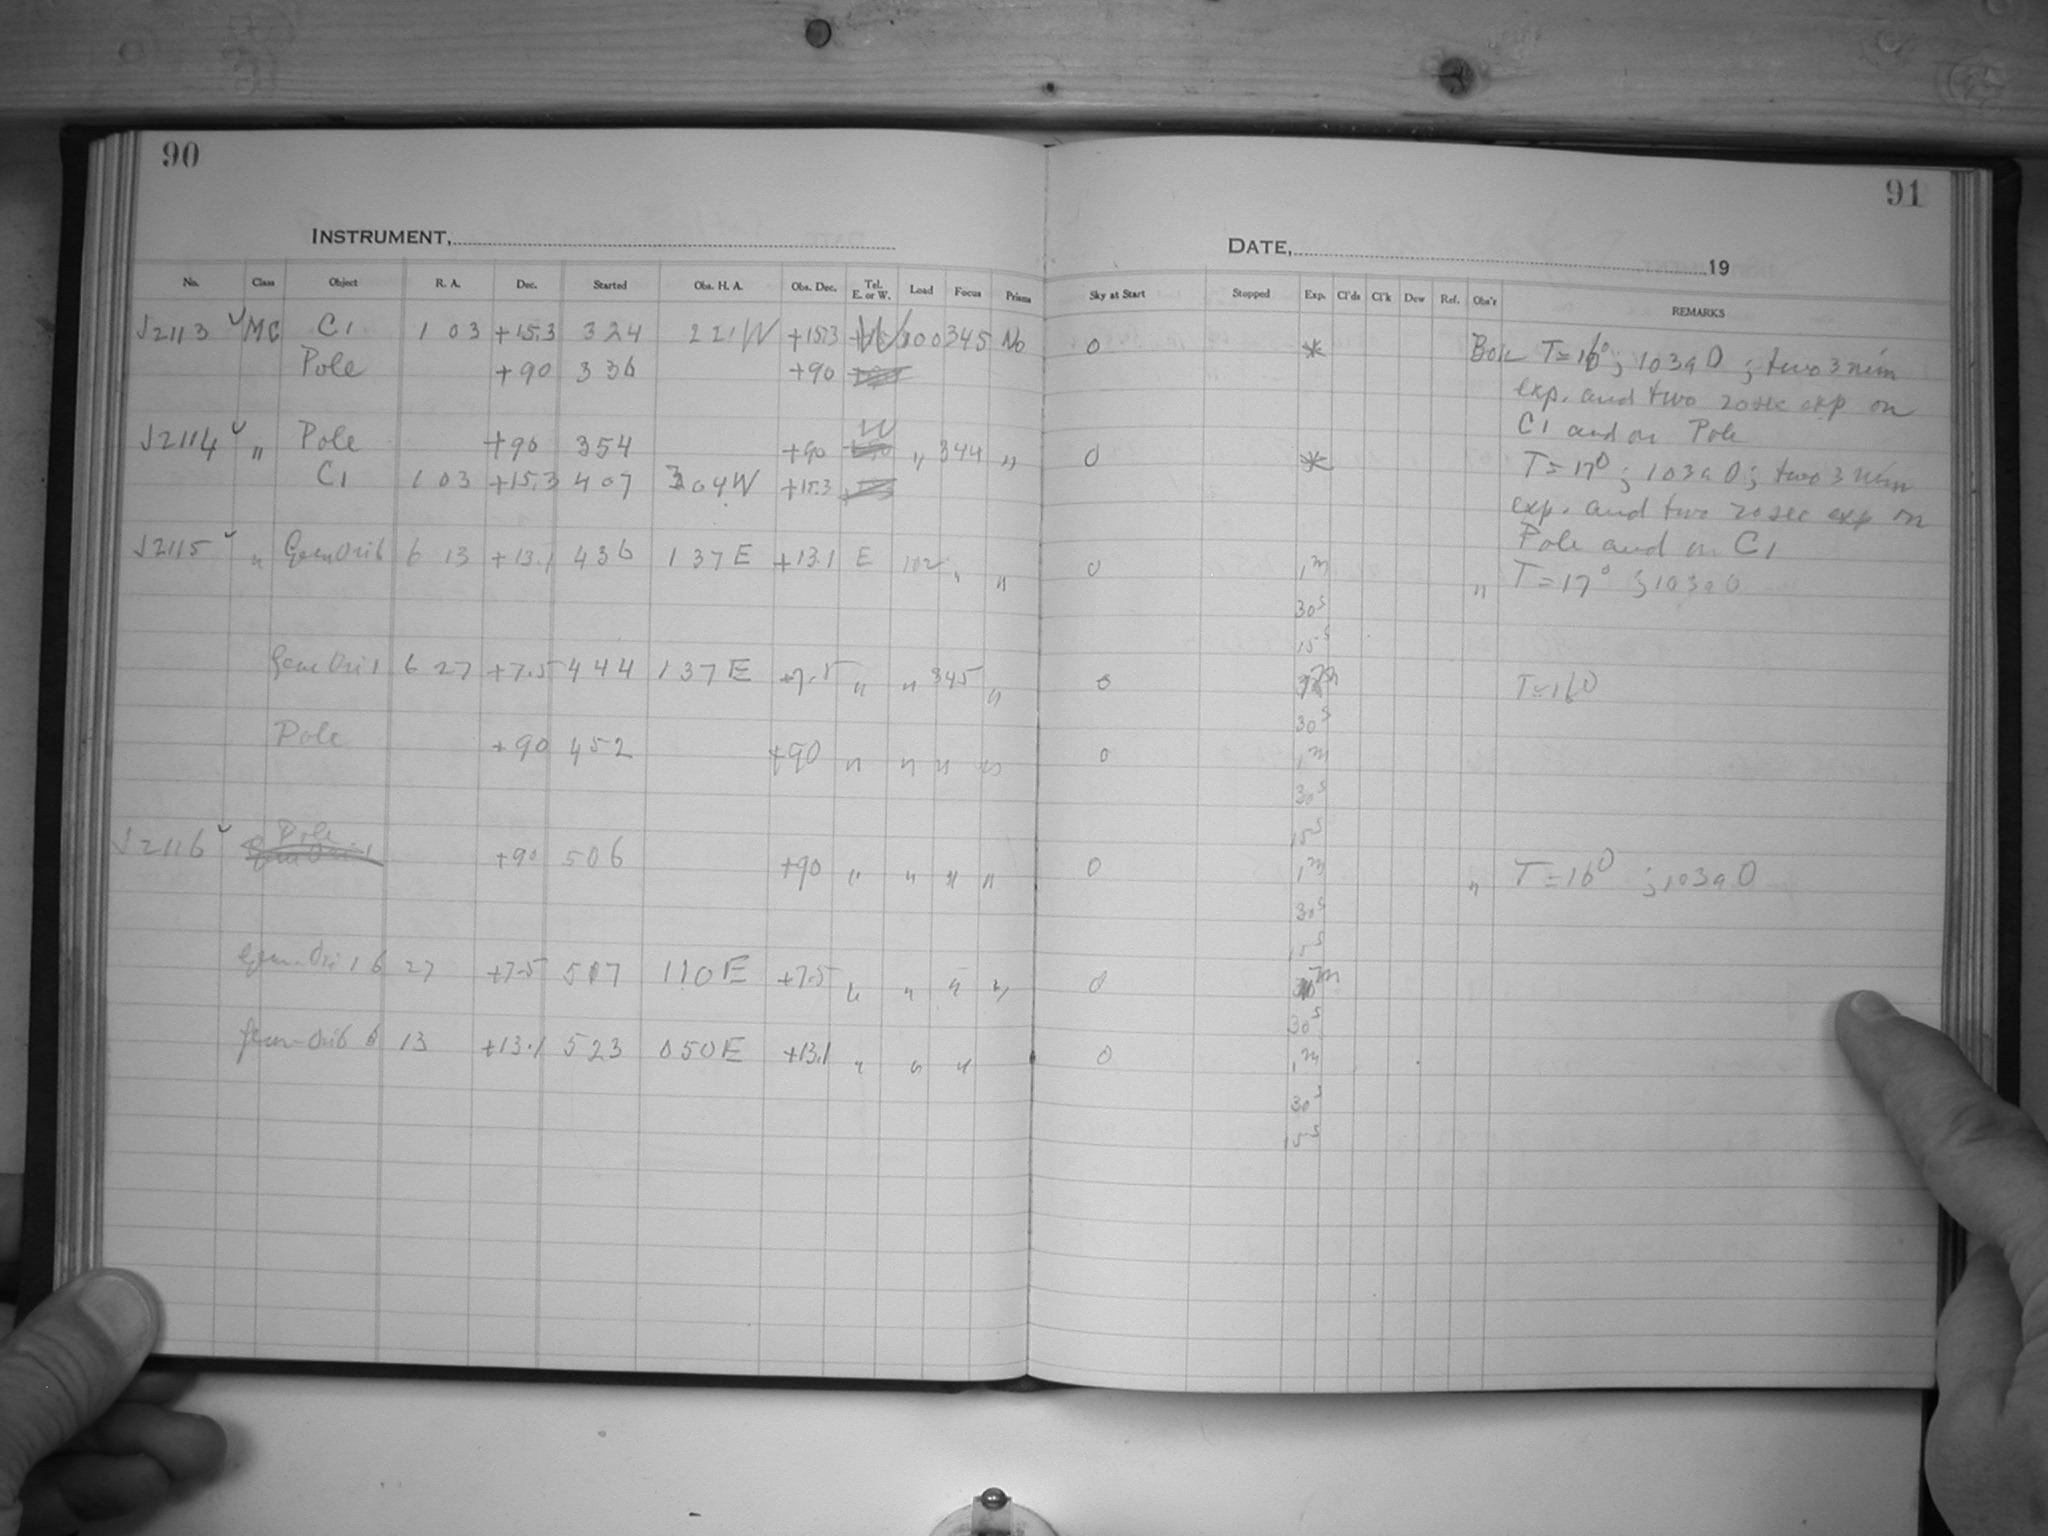 90
91
INSTRUMENT,
DATE, 19
No. Class Object R. A. Dec. Started Obs. H. A. Obs. Dec. Tel. E. or W. Load Focus Prisms Sky at Start Stopped Exp. Cl'ds Cl'k Dew Ref. Obs'r REMARKS
J2113 MC C1 1 03 +15.3 3 24 2 21 W +15.3 W 100 345 No 0 * Bok T=16° ; 103a O ; two 3 min
Pole +90 3 36 +90 exp. and two 20 sec exp on
C1 and on Pole
J2114 " Pole +90 3 54 +90 W " 344 " 0 * T=17° ; 103a O ; two 3 min
C1 1 03 +15.3 4 07 3 04 W +15.3 exp. and two 20 sec exp on
Pole and on C1
J2115 " Gem Ori 6 6 13 +13.1 4 36 1 37 E +13.1 E 102 " " 0 1m " T=17° ; 103a O
30s
15s
Gem Ori 1 6 27 +7.5 4 44 1 37 E +7.5 " " 345 " 0 T=16°
30s
Pole +90 4 52 +90 " " " " 0 1m
30s
15s
J2116 Pole +90 5 06 +90 " " " " 0 1m " T=16° ; 103a O
30s
15s
Gem-Ori 1 6 27 +7.5 5 17 1 10 E +7.5 " " " " 0
30s
Gem-Ori 6 6 13 +13.1 5 23 0 50 E +13.1 " " " 0 1m
30s
15s